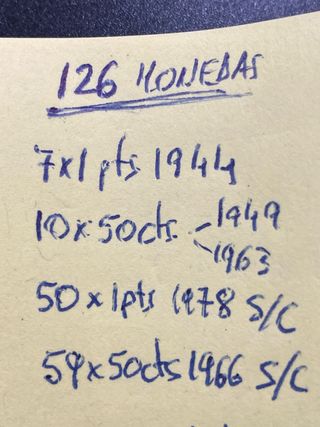 126 MONEDAS
7x1 pts 1944
10x50cts 1949
1963
50x1pts 1978 S/C
59x50cts 1966 S/C